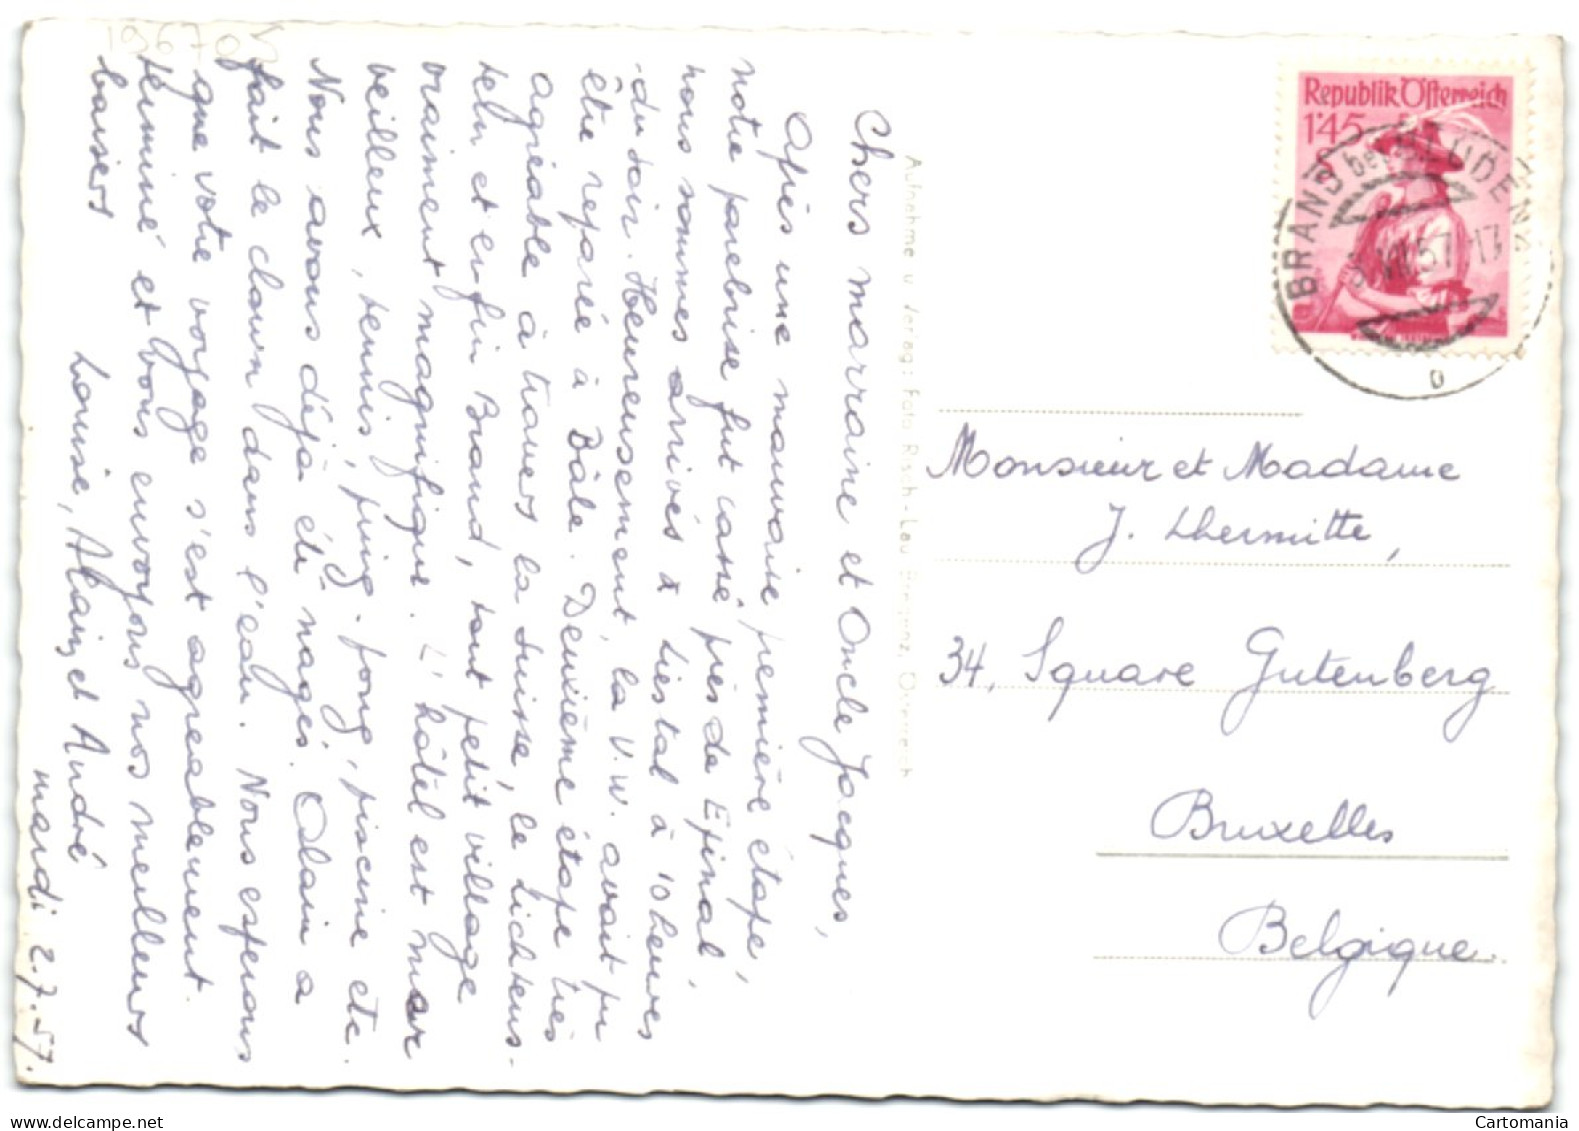 Chers marraine et Oncle Jacques,
Après une mauvaise première étape,
notre parebrise fut cassé près de Epinal,
nous sommes arrivés à Liestal à 10 heures
du soir. Heureusement, la V.W. avait pu
être reparée à Bâle. Deuxième étape très
agréable à travers la Suisse, le Lichtens-
tein et enfin Brand, tout petit village
vraiment magnifique. L'hôtel est mer
veilleux, tennis, ping-pong, piscine etc.
Nous avons déjà été nagés. Alain a
fait le clown dans l'eau. Nous esperons
que votre voyage s'est agreablement
terminé et vous envoyons nos meilleurs
baisers
Louise, Alain, et André
mardi 2.7.57.
196705
Aufnahme u. Verlag: Foto Risch-Lau Bregenz, Österreich
Republik Österreich
1'45
BRAND bei BLUDENZ
3.VII.57.17
b
Monsieur et Madame
J. Lhermitte,
34, Square Gutenberg
Bruxelles
Belgique.
delcampe.net
Cartomania